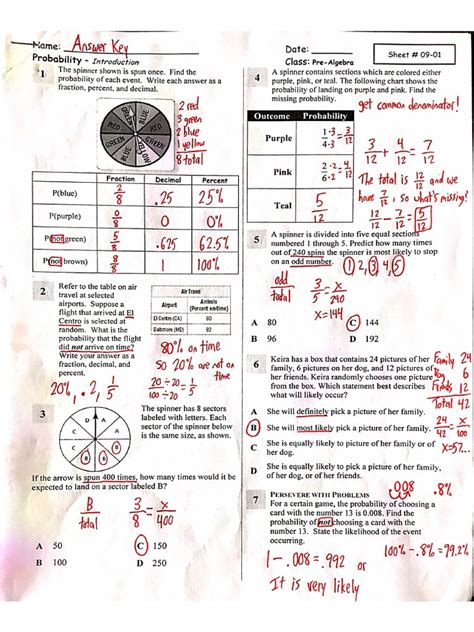 Name: Answer Key
Probability – Introduction
1
The spinner shown is spun once. Find the
probability of each event. Write each answer as a
fraction, percent, and decimal.
RED
BLUE
GREEN
2 red
3 green
2 blue
1 yellow
8 total
Fraction Decimal Percent
P(blue) 2/8 .25 25%
P(purple) 0/8 0 0%
P(not green) 5/8 .625 62.5%
P(not brown) 8/8 1 100%
2
Refer to the table on air
travel at selected
airports. Suppose a
flight that arrived at El
Centro is selected at
random. What is the
probability that the flight
did not arrive on time?
Write your answer as a
fraction, decimal, and
percent.
Air Travel
Airport Arrivals (Percent on-time)
El Centro (CA) 80
Baltimore (MD) 82
80% on time
So 20% are not on time
20 ÷ 20 = 1
100 ÷ 20 5
20%, .2, 1/5
3
The spinner has 8 sectors
labeled with letters. Each
sector of the spinner below
is the same size, as shown.
D A
C A
C C
B B B
If the arrow is spun 400 times, how many times would it be
expected to land on a sector labeled B?
B/total 3/8 = x/400
A 50
C 150
B 100
D 250
Date:
Class: Pre-Algebra
Sheet # 09-01
4
A spinner contains sections which are colored either
purple, pink, or teal. The following chart shows the probability
of landing on purple and pink. Find the
missing probability.
get common denominator!
Outcome Probability
Purple 1·3 = 3
4·3 12
Pink 2·2 = 4
6·2 12
Teal 5/12
3/12 + 4/12 = 7/12
The total is 12/12 and we
have 7/12, so what's missing?
12/12 - 7/12 = 5/12
5
A spinner is divided into five equal sections
numbered 1 through 5. Predict how many times
out of 240 spins the spinner is most likely to stop
on an odd number.
1 2, 3 4, 5
odd/total 3/5 = x/240
x=144
A 80
C 144
B 96
D 192
6
Keira has a box that contains 24 pictures of her
family, 6 pictures of her dog, and 12 pictures of
her friends. Keira randomly chooses one picture
from the box. Which statement best describes
what will likely occur?
Family 24
Dog 6
Friends 12
Total 42
A She will definitely pick a picture of her family.
B She will most likely pick a picture of her family.
C She is equally likely to pick a picture of her family or of
her dog.
D She is equally likely to pick a picture of her family,
of her dog, or of her friends.
24/42 = x/100
x=57...
7
PERSEVERE WITH PROBLEMS
For a certain game, the probability of choosing a
card with the number 13 is 0.008. Find the
probability of not choosing a card with the
number 13. State the likelihood of the event
occurring.
.008
.8%
1 - .008 = .992 or
100% - .8% = 99.2%
It is very likely